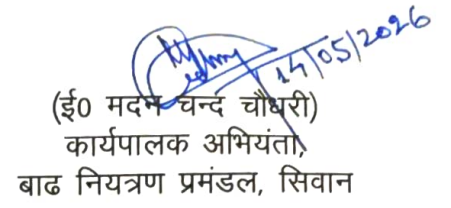 14/05/2026
(ई0 मदन चन्द चौधरी)
कार्यपालक अभियंता,
बाढ नियत्रण प्रमंडल, सिवान